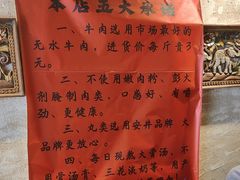 本店五大承诺
一、牛肉选用市场最好的
无水牛肉，进货价每斤贵3
元。
二、不使用嫩肉粉、彭大
剂腌制肉类，口感好、有嚼
劲、更健康。
三、丸类选用安井品牌、大
品牌更放心。
四、每日现熬大骨汤，不
用骨汤膏、三花淡奶等，用产